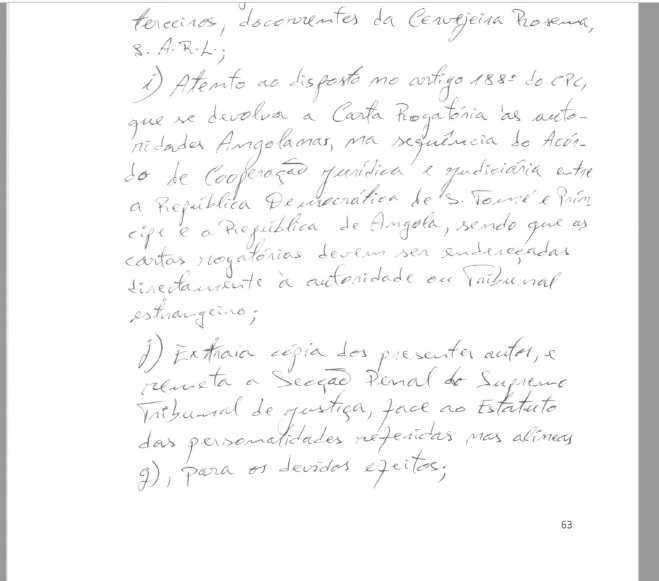 terceiros, docorrentes da Cervejeira Rosema,
S.A.R.L.;
i) Atento ao disposto no artigo 188º do CPC,
que se devolva a Carta Rogatória às auto-
ridades Angolanas, na sequência do Acór-
do de Cooperação jurídica e judiciária entre
a República Democrática de S. Tomé e Prín
cipe e a República de Angola, sendo que as
cartas rogatórias devem ser endereçadas
directamente à autoridade ou Tribunal
estrangeiro;
j) Extraia cópia dos presentes autos, e
remeta a Secção Penal do Supremo
Tribunal de justiça, face ao Estatuto
das personalidades referidas nas alíneas
g), para os devidos efeitos;
63